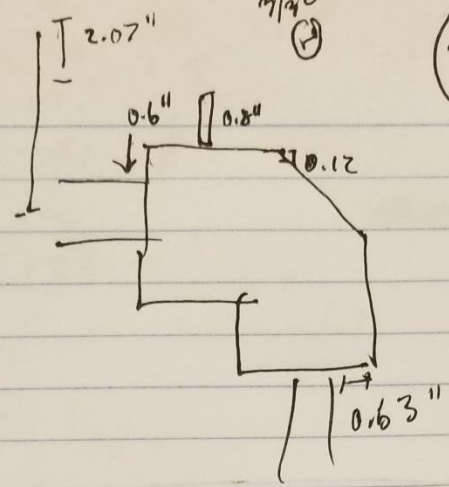 2.07"
0.6"
0.8"
0.12
0.63"